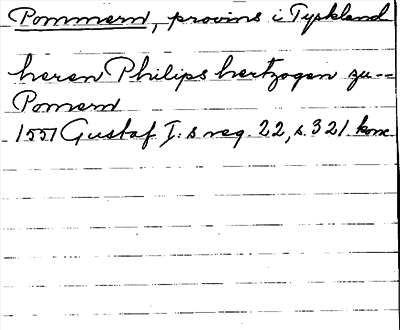 Pommern, provins i Tyskland
heren Philips hertzogen zu--
Pomern
1551 Gustaf I:s reg. 22, s. 321 konc.